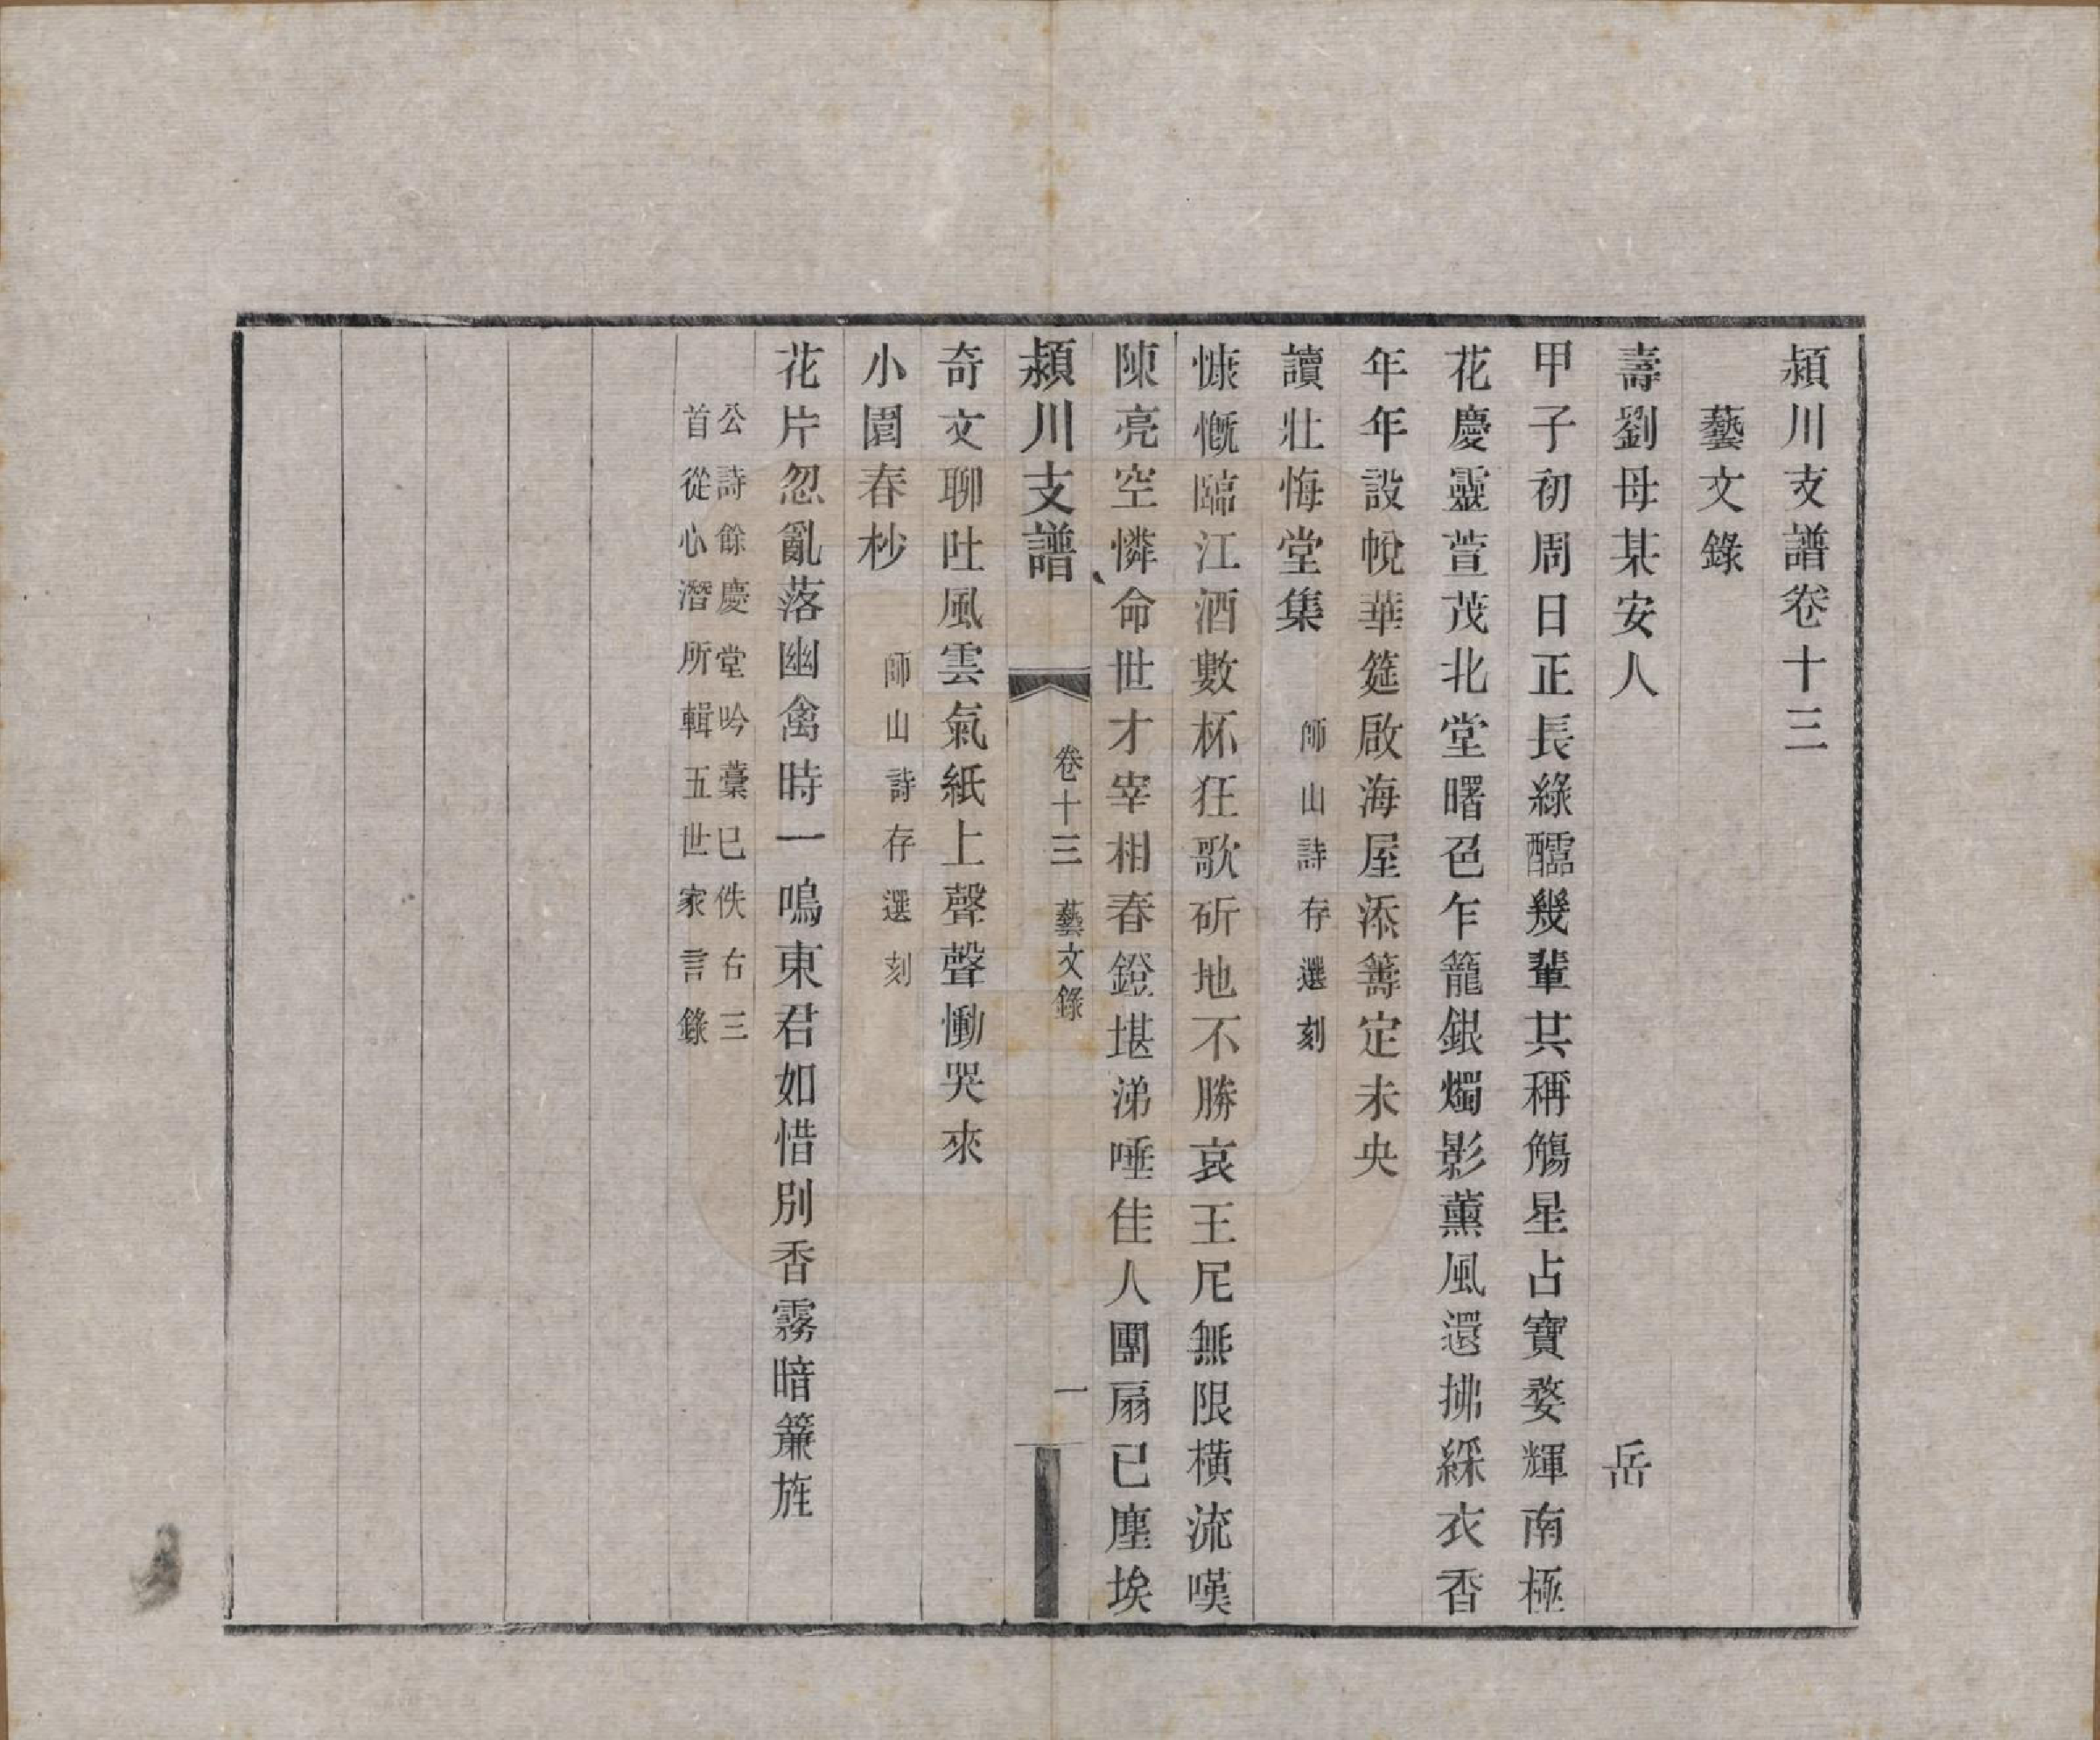 潁川支譜卷十三
藝文錄
壽劉母某安人　岳
甲子初周日正長綠醽幾輩共稱觴星占寶婺輝南極
花慶靈萱茂北堂曙色乍籠銀燭影薰風還拂綵衣香
年年設帨華筵啟海屋添籌定未央
讀壯悔堂集　師山詩存選刻
慷慨臨江酒數杯狂歌斫地不勝哀王尼無限橫流嘆
陳亮空憐命世才宰相春鐙堪涕唾佳人團扇已塵埃
潁川支譜　卷十三　藝文錄　一
奇文聊吐風雲氣紙上聲聲慟哭來
小園春杪　師山詩存選刻
花片忽亂落幽禽時一鳴東君如惜別香霧暗簾旌
公詩餘慶堂吟藁已佚右三
首從心潛所輯五世家言錄